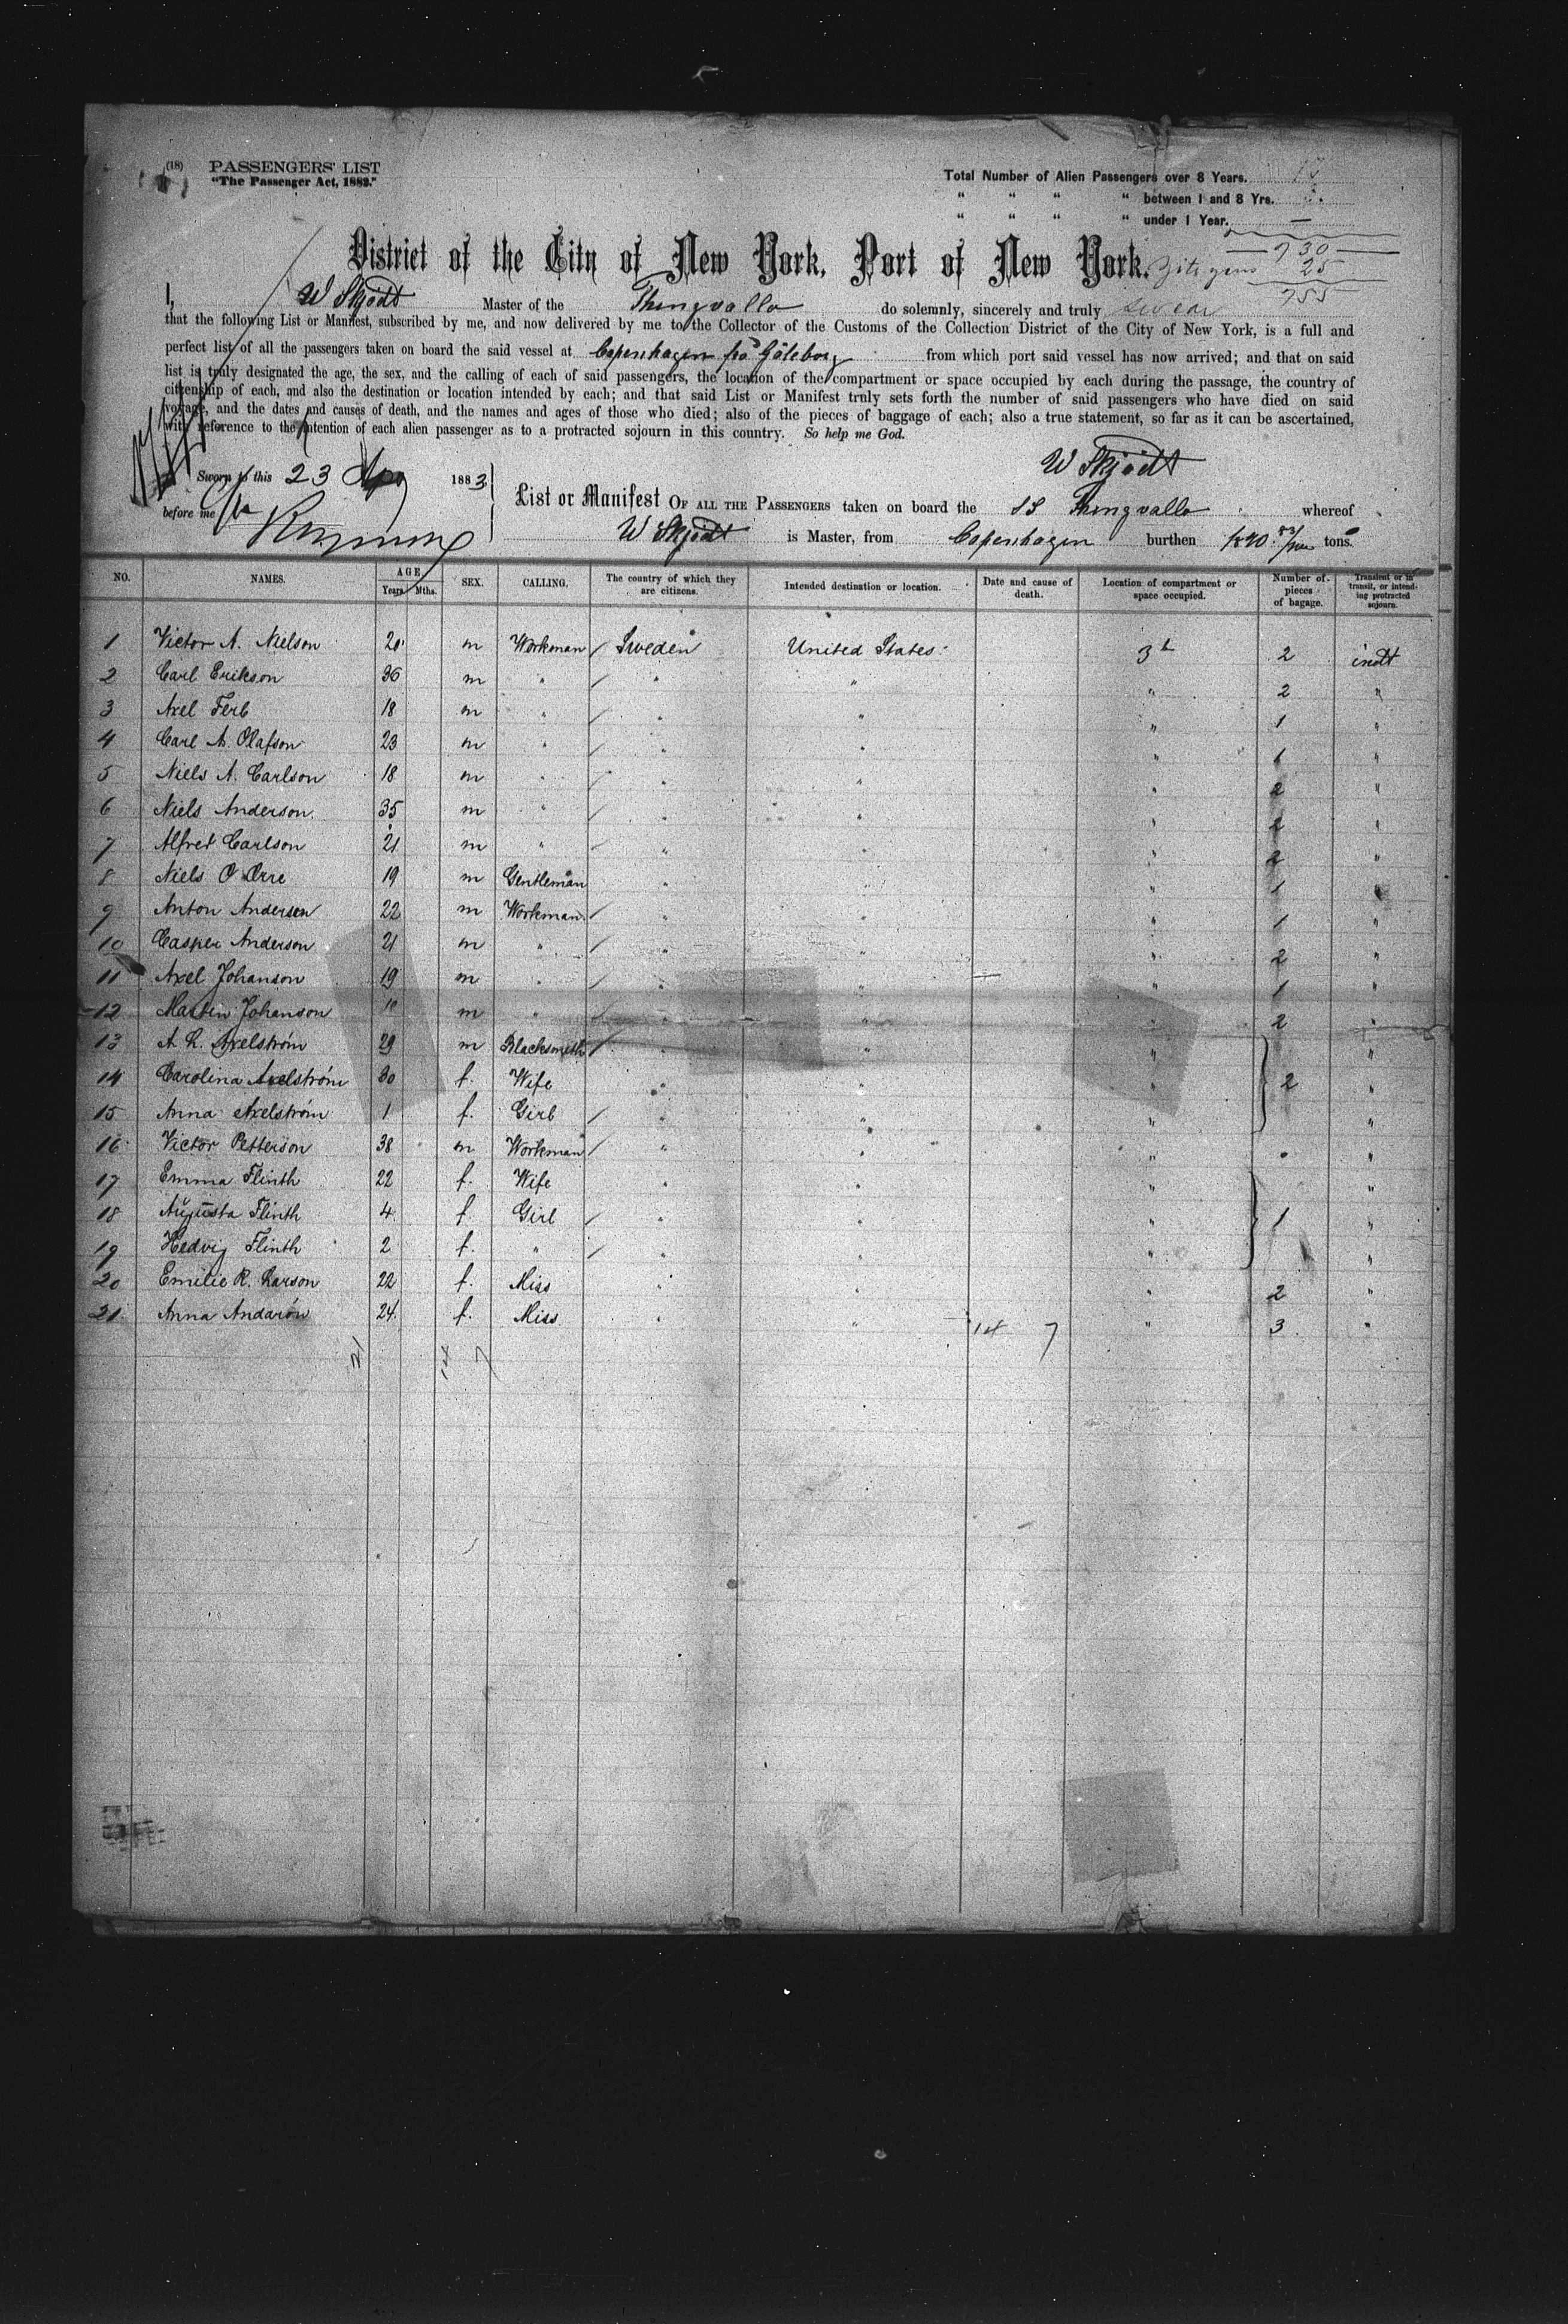 (18) PASSENGERS' LIST
"The Passenger Act, 1882."
Total Number of Alien Passengers over 8 Years.
" " " " between 1 and 8 Yrs.
" " " " under 1 Year. —
District of the City of New York, Port of New York.
730
25
755
I, W Skjödt Master of the Thingvalla do solemnly, sincerely and truly swear
that the following List or Manifest, subscribed by me, and now delivered by me to the Collector of the Customs of the Collection District of the City of New York, is a full and
perfect list of all the passengers taken on board the said vessel at Copenhagen frå Göteborg from which port said vessel has now arrived; and that on said
list is truly designated the age, the sex, and the calling of each of said passengers, the location of the compartment or space occupied by each during the passage, the country of
citizenship of each, and also the destination or location intended by each; and that said List or Manifest truly sets forth the number of said passengers who have died on said
voyage, and the dates and causes of death, and the names and ages of those who died; also of the pieces of baggage of each; also a true statement, so far as it can be ascertained,
with reference to the intention of each alien passenger as to a protracted sojourn in this country. So help me God.
W Skjödt
Sworn to this 23 1883
before me
List or Manifest OF ALL THE PASSENGERS taken on board the SS Thingvalla whereof
W Skjödt is Master, from Copenhagen burthen tons.
NO. NAMES. AGE. Years Mths. SEX. CALLING. The country of which they are citizens. Intended destination or location. Date and cause of death. Location of compartment or space occupied. Number of pieces of bagage. Transient or in transit, or intending protracted sojourn.
1 Victor A. Nielson 20 m Workman Sweden United States 3 2
2 Carl Erikson 36 m " " " " 2 "
3 Axel Ferb 18 m " " " " 1 "
4 Carl A. Olafson 23 m " " " " 1 "
5 Niels A. Carlson 18 m " " " " 2 "
6 Niels Anderson 35 m " " " " 2 "
7 Alfred Carlson 21 m " " " " 2 "
8 Niels O 19 m Gentleman " " " 1 "
9 Anton Andersen 22 m Workman " " " 1 "
10 Casper Anderson 21 m " " " " 2 "
11 Axel Johanson 19 m " " " " 1 "
12 Martin Johanson 10 m " " " " 2 "
13 A. R. Axelström 29 m Blacksmith " " " "
14 Carolina Axelström 30 f. Wife " " " 2 "
15 Anna Axelström 1 f. Girl " " " "
16 Victor Petterson 38 m Workman " " " "
17 Emma Flinth 22 f. Wife " " " "
18 Augusta Flinth 4 f. Girl " " " 1 "
19 Hedvig Flinth 2 f. " " " " "
20 Emilie R. Larson 22 f. Miss " " " 2 "
21 Anna Andarön 24 f. Miss " " " 3 "
14 7
21 14 7